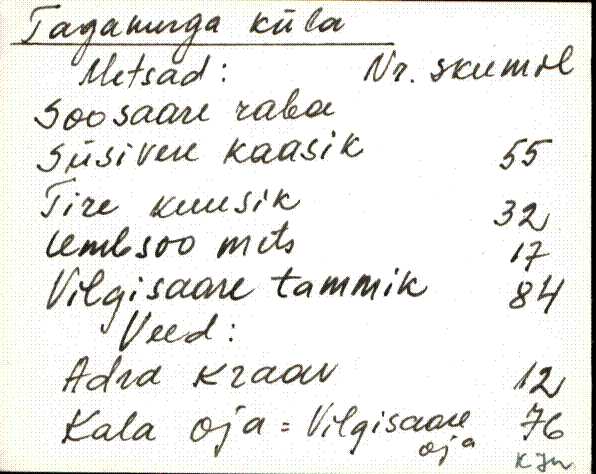 Taganurga küla
Metsad: Nr. skeemil
Soosaare raba
Süsivere kaasik 55
Tire kuusik 32
Umbsoo mets 17
Vilgisaare tammik 84
Veed:
Adra kraav 12
Kala oja = Vilgisaare 76
oja